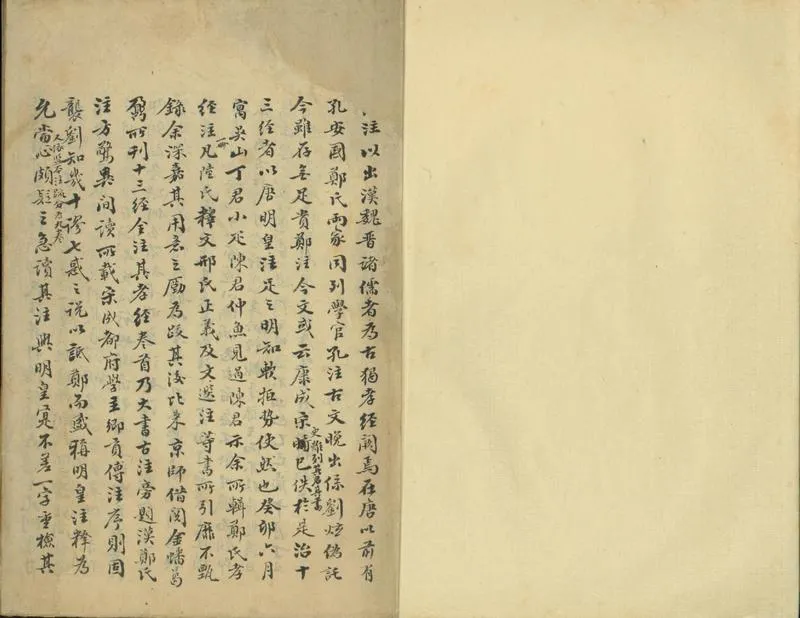 注以出漢魏晉諸儒者為古獨孝經闕焉在唐以前有
孔安國鄭氏兩家同列學官孔注古文晚出係劉炫偽託
今雖存無足貴鄭注今文或云康成宋史雖列其名其書已佚於是治十
三經者以唐明皇注足之明知軟拒勢使然也癸卯六月
寓吳山丁君小疋陳君仲魚見過陳君示余所輯鄭氏孝
經注一冊凡陸氏釋文邢氏正義及文選注等書所引靡不甄
錄余深嘉其用意之勵為跋其後比來京師借閱金蟠葛
鼒所刊十三經全注其孝經卷首乃大書古注旁題漢鄭氏
注方驚異間讀所載宋成都府學主鄉貢傅注序則固
襲劉知幾十謬七惑之說以詆鄭而盛稱明皇注釋為
允當心頗疑之急讀其注與明皇寔不差一字重檢其